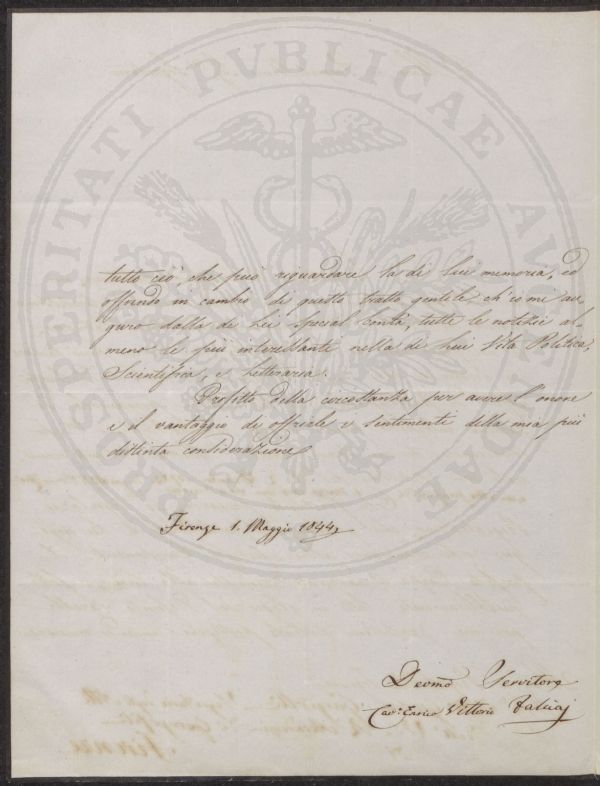 PROSPERITATI PVBLICAE AVGENDAE
tutto ciò, che può riguardare la di Lui memoria, ed
offrendo in cambio di questo tratto gentile ch'io mi au-
guro dalla di Lei special bontà, tutte le notizie al-
meno le più interessanti nella di Lui Vita Politica,
Scientifica, e Letteraria.
Profitto della circostanza per avere l'onore
e il vantaggio di offrirle i sentimenti della mia più
distinta considerazione
Firenze 1. Maggio 1844
Devmo Servitore
Cav: Enrico Vittorio